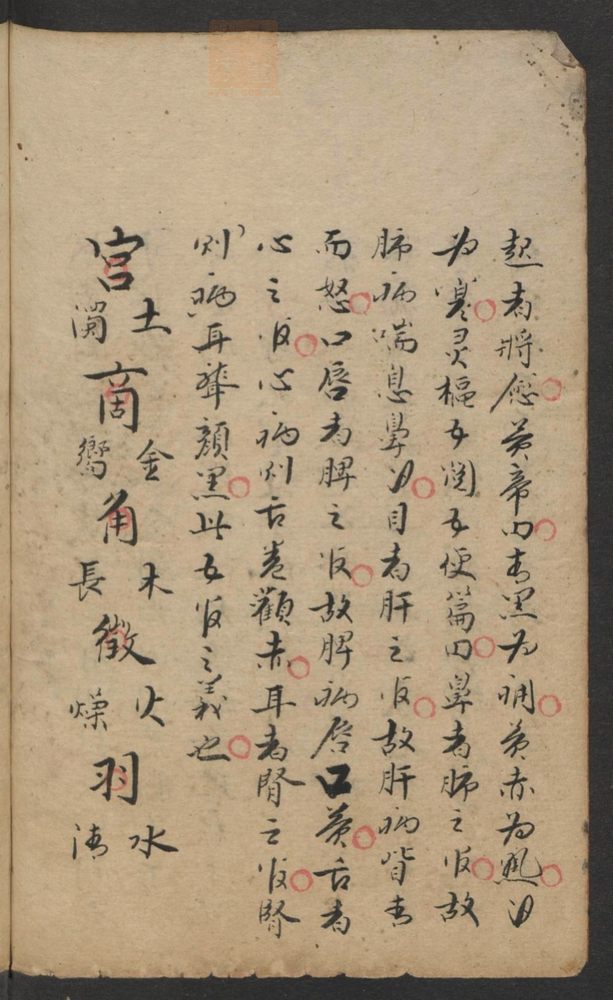 起者將愈黃帝曰青黑为痛黃赤为熱白
为寒灵樞五閱五使篇曰鼻者肺之官故
肺病喘息鼻目者肝之官故肝病眥青
而怒口唇者脾之官故脾病唇口黃舌者
心之官心病则舌卷顴赤耳者腎之官腎
则病耳聾顏黑此五官之義也
土 金 木 火 水
宮 商 角 徵 羽
嚮 長 燥 清